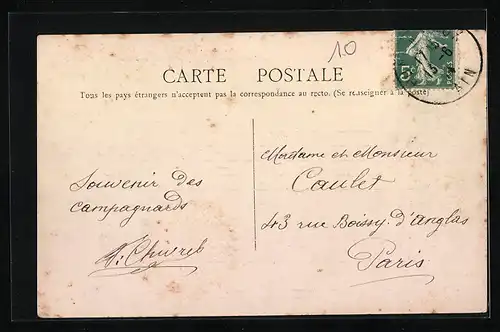 10
CARTE POSTALE
Tous les pays étrangers n'acceptent pas la correspondance au recto. (Se renseigner à la poste)
5c
AIN
Souvenir des
campagnards
Madame et Monsieur
Caulet
43 rue Boissy-d'Anglas
Paris